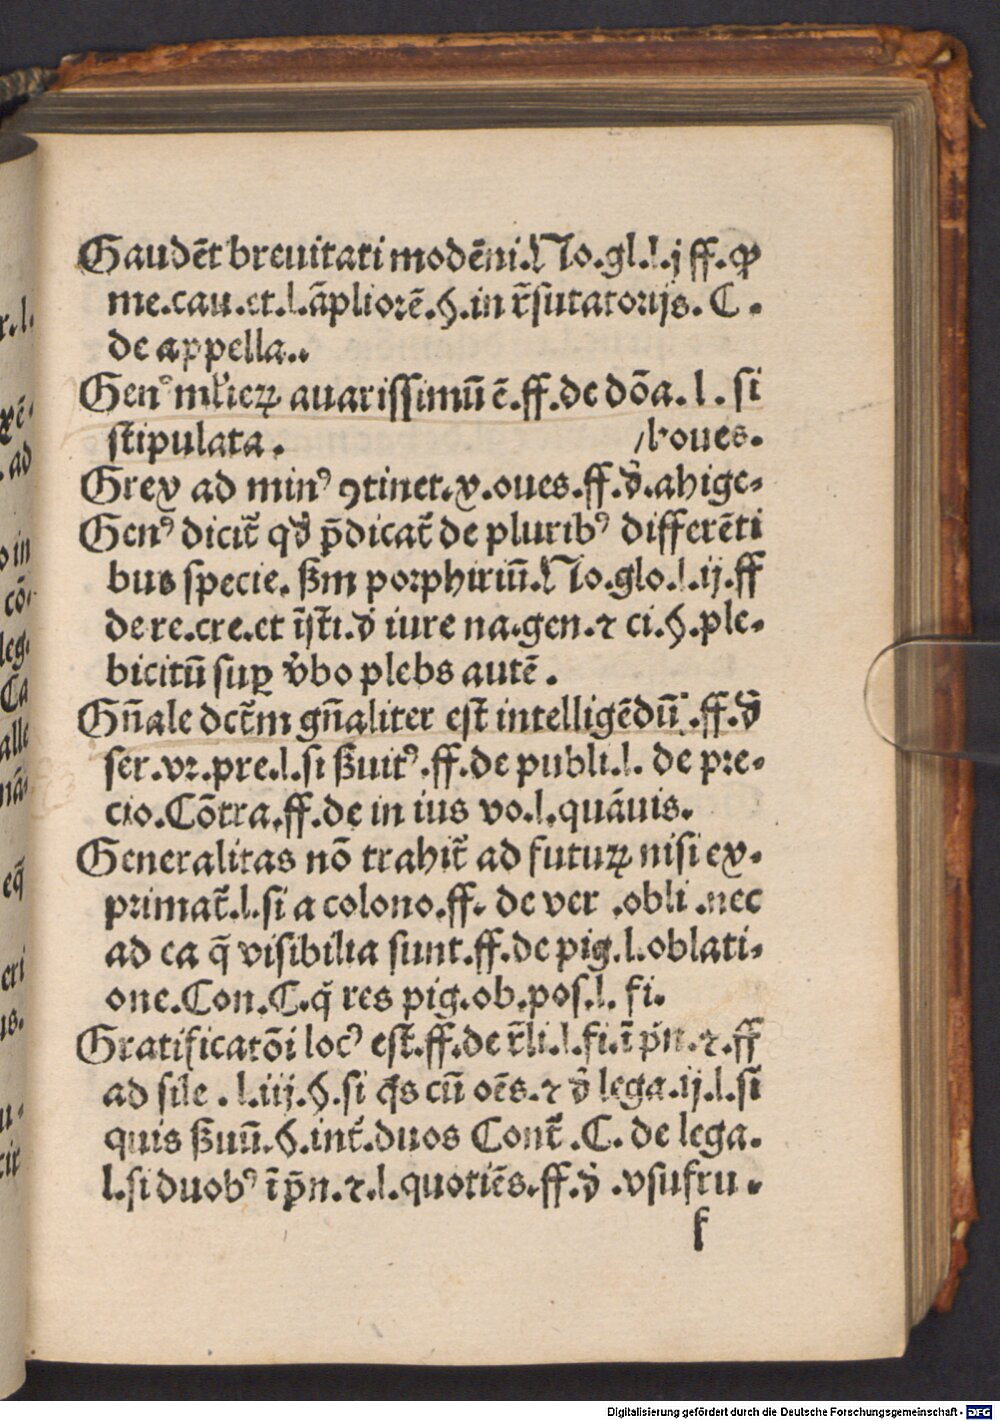 Gaudēt breuitati modēni. No.gl.l.j ff.qͥ
me.cau.et.l.āpliorē.§.in r̄sutatorijs. C.
de appella..
Genꝰ mlieꝝ auarissimū ē.ff.de dōa.l.si
stipulata.
/boues.
Grex ad minꝰ ꝯtinet.x.oues.ff.d̄.abige⸗
Genꝰ dicit̄ qd̄ p̄dicat̄ de pluribꝰ differēti
bus specie. ßm porphiriū. No.glo.l.ij.ff
de re.cre.et īsti.d̄ iure na.gen.⁊ ci.§.ple⸗
bicitū suꝑ v̄bo plebs autē.
Gn̄ale dct̄m gn̄aliter est intelligēdū.ff.d̄
ser.vr.pre.l.si ßuitꝰ.ff.de publi.l. de pre⸗
cio.Cōtra.ff.de in ius vo.l.quāuis.
Generalitas nō trahit̄ ad futuꝝ nisi ex⸗
primat̄.l.si a colono.ff. de ver .obli .nec
ad ea q̄ visibilia sunt.ff.de pig.l.oblati⸗
one.Con.C.q̄ res pig.ob.pos.l. fi.
Gratificatōi locꝰ est.ff.de r̄li.l.fi.ī pn̄.⁊.ff
ad sile .l.iij.§.si q̄s cū oēs.⁊ d̄ lega.ij.l.si
quis ßuū.§.int̄.duos Cont̄.C. de lega.
l.si duobꝰ ī pn̄.⁊.l.quotiēs.ff.d̄ .vsufru⸗
f
Digitalisierung gefördert durch die Deutsche Forschungsgemeinschaft - DFG